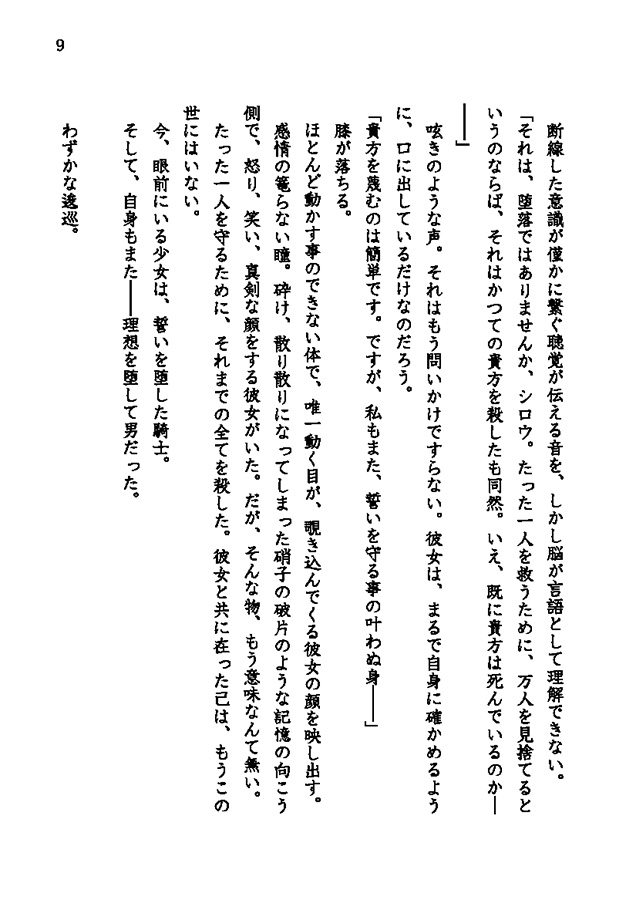 9
断線した意識が僅かに繋ぐ聴覚が伝える音を、しかし脳が言語として理解できない。
「それは、堕落ではありませんか、シロウ。たった一人を救うために、万人を見捨てると
いうのならば、それはかつての貴方を殺したも同然。いえ、既に貴方は死んでいるのか―
―」
呟きのような声。それはもう問いかけですらない。彼女は、まるで自身に確かめるよう
に、口に出しているだけなのだろう。
「貴方を蔑むのは簡単です。ですが、私もまた、誓いを守る事の叶わぬ身――」
膝が落ちる。
ほとんど動かす事のできない体で、唯一動く目が、覗き込んでくる彼女の顔を映し出す。
感情の篭らない瞳。砕け、散り散りになってしまった硝子の破片のような記憶の向こう
側で、怒り、笑い、真剣な顔をする彼女がいた。だが、そんな物、もう意味なんて無い。
たった一人を守るために、それまでの全てを殺した。彼女と共に在った己は、もうこの
世にはいない。
今、眼前にいる少女は、誓いを堕した騎士。
そして、自身もまた――理想を堕して男だった。
わずかな逡巡。